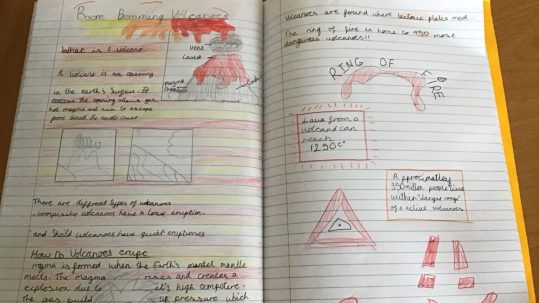 Boom Bomming Volcanoes
What is a volcano
vent
lava
magma
chamber
A Volcano is an opening
in the earth's surface. It
the opening allows gas,
hot magma and ash to escape
from beneath the earth's crust
There are different types of volcanoes
- composite volcanoes have a loud eruption.
and Sheild Volcanoes have quiet eruptions
How Do Volcanoes erupt
magma is formed when the Earth's mantle
melts. The magma rises and creates a
explosion due to it's high
the gas build up pressure which
Volcanoes are found where tectonic plates meet.
The ring of fire is home to 450 most
dangerous volcanoes!!
RING OF FIRE
Lava from a
volcano can
reach
1250c°
Approximatley
350 million people live
within "danger range"
of active volcanoes